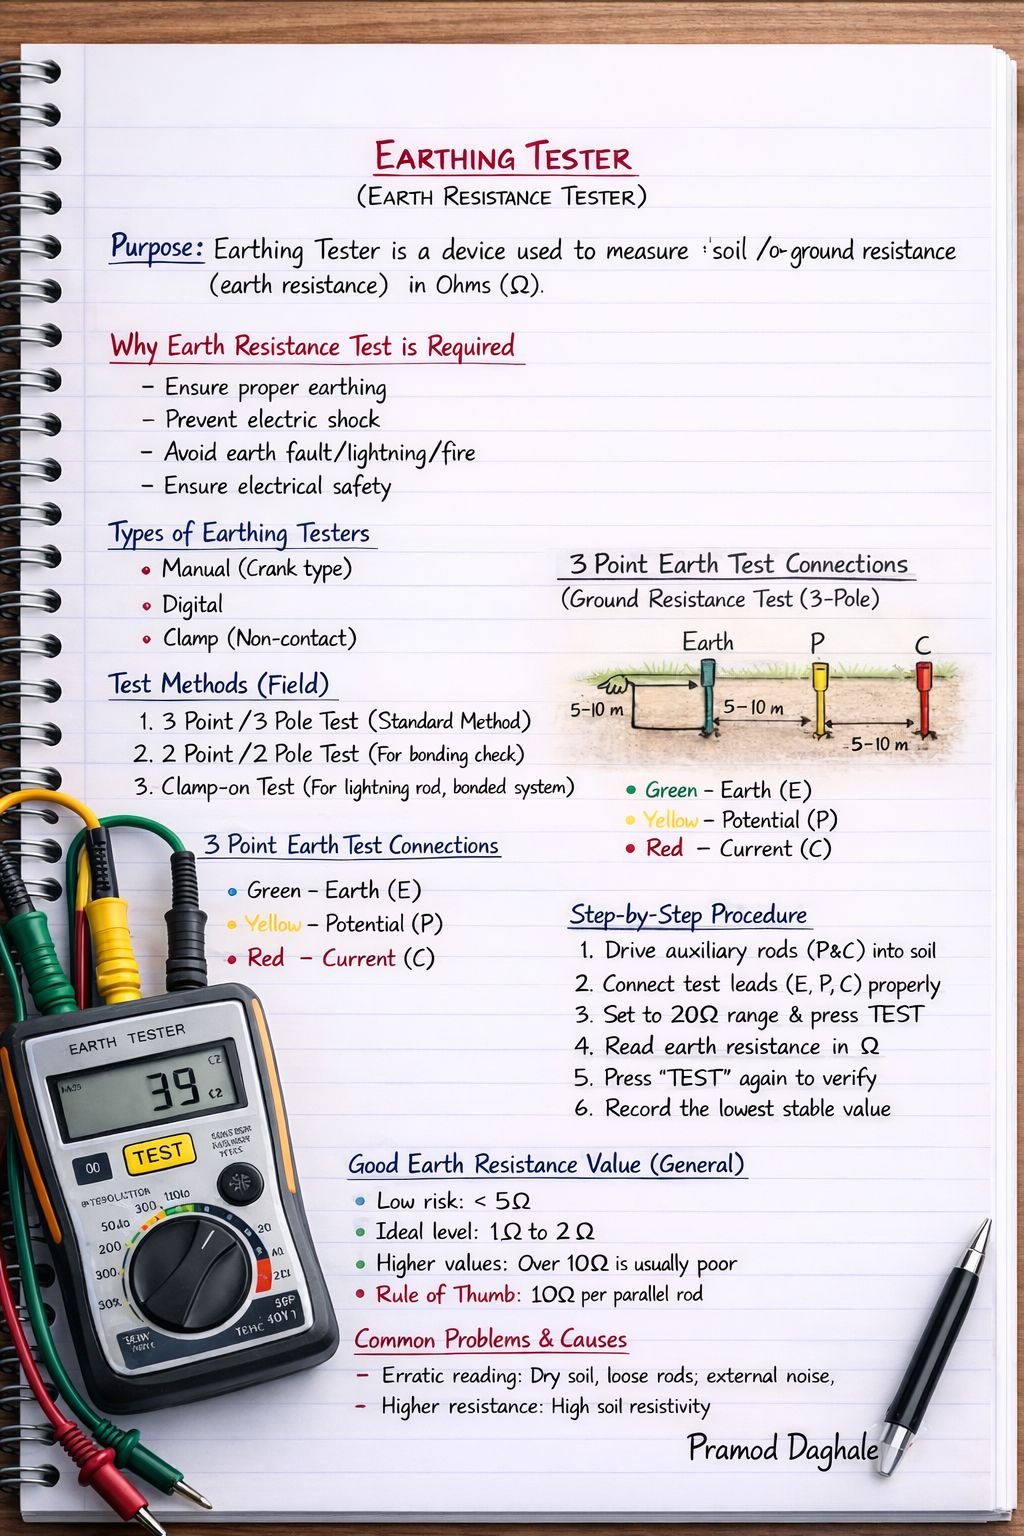 EARTHING TESTER
(EARTH RESISTANCE TESTER)
Purpose: Earthing Tester is a device used to measure soil /or ground resistance
(earth resistance) in Ohms (Ω).
Why Earth Resistance Test is Required
– Ensure proper earthing
– Prevent electric shock
– Avoid earth fault/lightning/fire
– Ensure electrical safety
Types of Earthing Testers
• Manual (Crank type)
• Digital
• Clamp (Non-contact)
Test Methods (Field)
1. 3 Point/3 Pole Test (Standard Method)
2. 2 Point/2 Pole Test (For bonding check)
3. Clamp-on Test (For lightning rod, bonded system)
3 Point Earth Test Connections
(Ground Resistance Test (3-Pole)
Earth P C
5-10 m
5-10 m
5-10 m
• Green – Earth (E)
• Yellow – Potential (P)
• Red – Current (C)
3 Point Earth Test Connections
• Green – Earth (E)
• Yellow – Potential (P)
• Red – Current (C)
Step-by-Step Procedure
1. Drive auxiliary rods (P&C) into soil
2. Connect test leads (E, P, C) properly
3. Set to 20Ω range & press TEST
4. Read earth resistance in Ω
5. Press “TEST” again to verify
6. Record the lowest stable value
EARTH TESTER
39
TEST
00
300
200
300
20
Good Earth Resistance Value (General)
• Low risk: < 5Ω
• Ideal level: 1Ω to 2 Ω
• Higher values: Over 10Ω is usually poor
• Rule of Thumb: 10Ω per parallel rod
Common Problems & Causes
– Erratic reading: Dry soil, loose rods; external noise,
– Higher resistance: High soil resistivity
Pramod Daghale